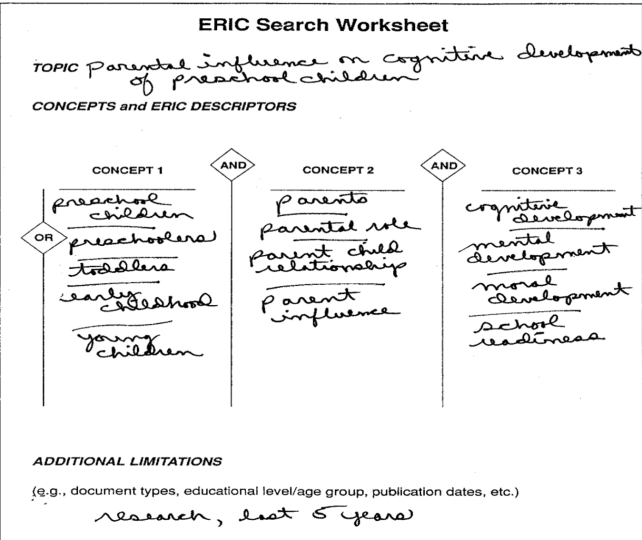 ERIC Search Worksheet
TOPIC parental influence on cognitive development
of preschool children
CONCEPTS and ERIC DESCRIPTORS
AND
AND
CONCEPT 1
CONCEPT 2
CONCEPT 3
OR
preschool
children
preschoolers
toddlers
early
childhood
young
children
parents
parental role
parent child
relationship
parent
influence
cognitive
development
mental
development
moral
development
school
readiness
ADDITIONAL LIMITATIONS
(e.g., document types, educational level/age group, publication dates, etc.)
research, last 5 years